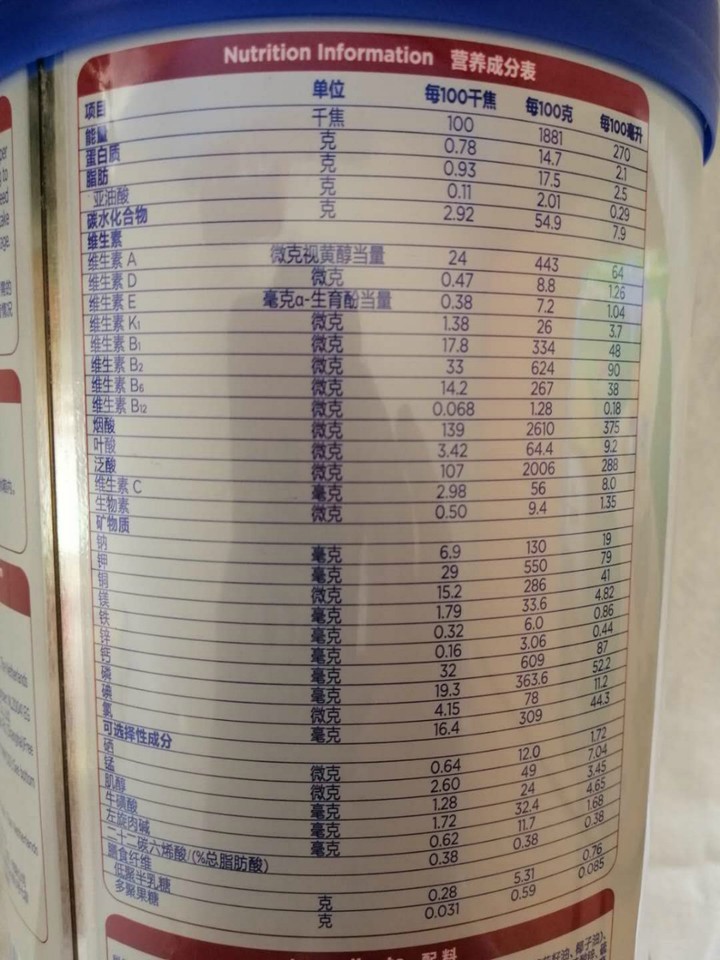 Nutrition Information 营养成分表
项目 单位 每100千焦 每100克 每100毫升
能量 千焦 100 1881 270
蛋白质 克 0.78 14.7 2.1
脂肪 克 0.93 17.5 2.5
亚油酸 克 0.11 2.01 0.29
碳水化合物 克 2.92 54.9 7.9
维生素
维生素 A 微克视黄醇当量 24 443 64
维生素 D 微克 0.47 8.8 1.26
维生素 E 毫克α-生育酚当量 0.38 7.2 1.04
维生素 K₁ 微克 1.38 26 3.7
维生素 B₁ 微克 17.8 334 48
维生素 B₂ 微克 33 624 90
维生素 B₆ 微克 14.2 267 38
维生素 B₁₂ 微克 0.068 1.28 0.18
烟酸 微克 139 2610 375
叶酸 微克 3.42 64.4 9.2
泛酸 微克 107 2006 288
维生素 C 毫克 2.98 56 8.0
生物素 微克 0.50 9.4 1.35
矿物质
钠 毫克 6.9 130 19
钾 毫克 29 550 79
铜 微克 15.2 286 41
镁 毫克 1.79 33.6 4.82
铁 毫克 0.32 6.0 0.86
锌 毫克 0.16 3.06 0.44
钙 毫克 32 609 87
磷 毫克 19.3 363.6 52.2
碘 微克 4.15 78 11.2
氯 毫克 16.4 309 44.3
可选择性成分
硒 微克 0.64 12.0 1.72
锰 微克 2.60 49 7.04
肌醇 毫克 1.28 24 3.45
牛磺酸 毫克 1.72 32.4 4.65
左旋肉碱 毫克 0.62 11.7 1.68
二十二碳六烯酸/(%总脂肪酸) 0.38 0.38 0.38
膳食纤维
低聚半乳糖 克 0.28 5.31 0.76
多聚果糖 克 0.031 0.59 0.085
配料